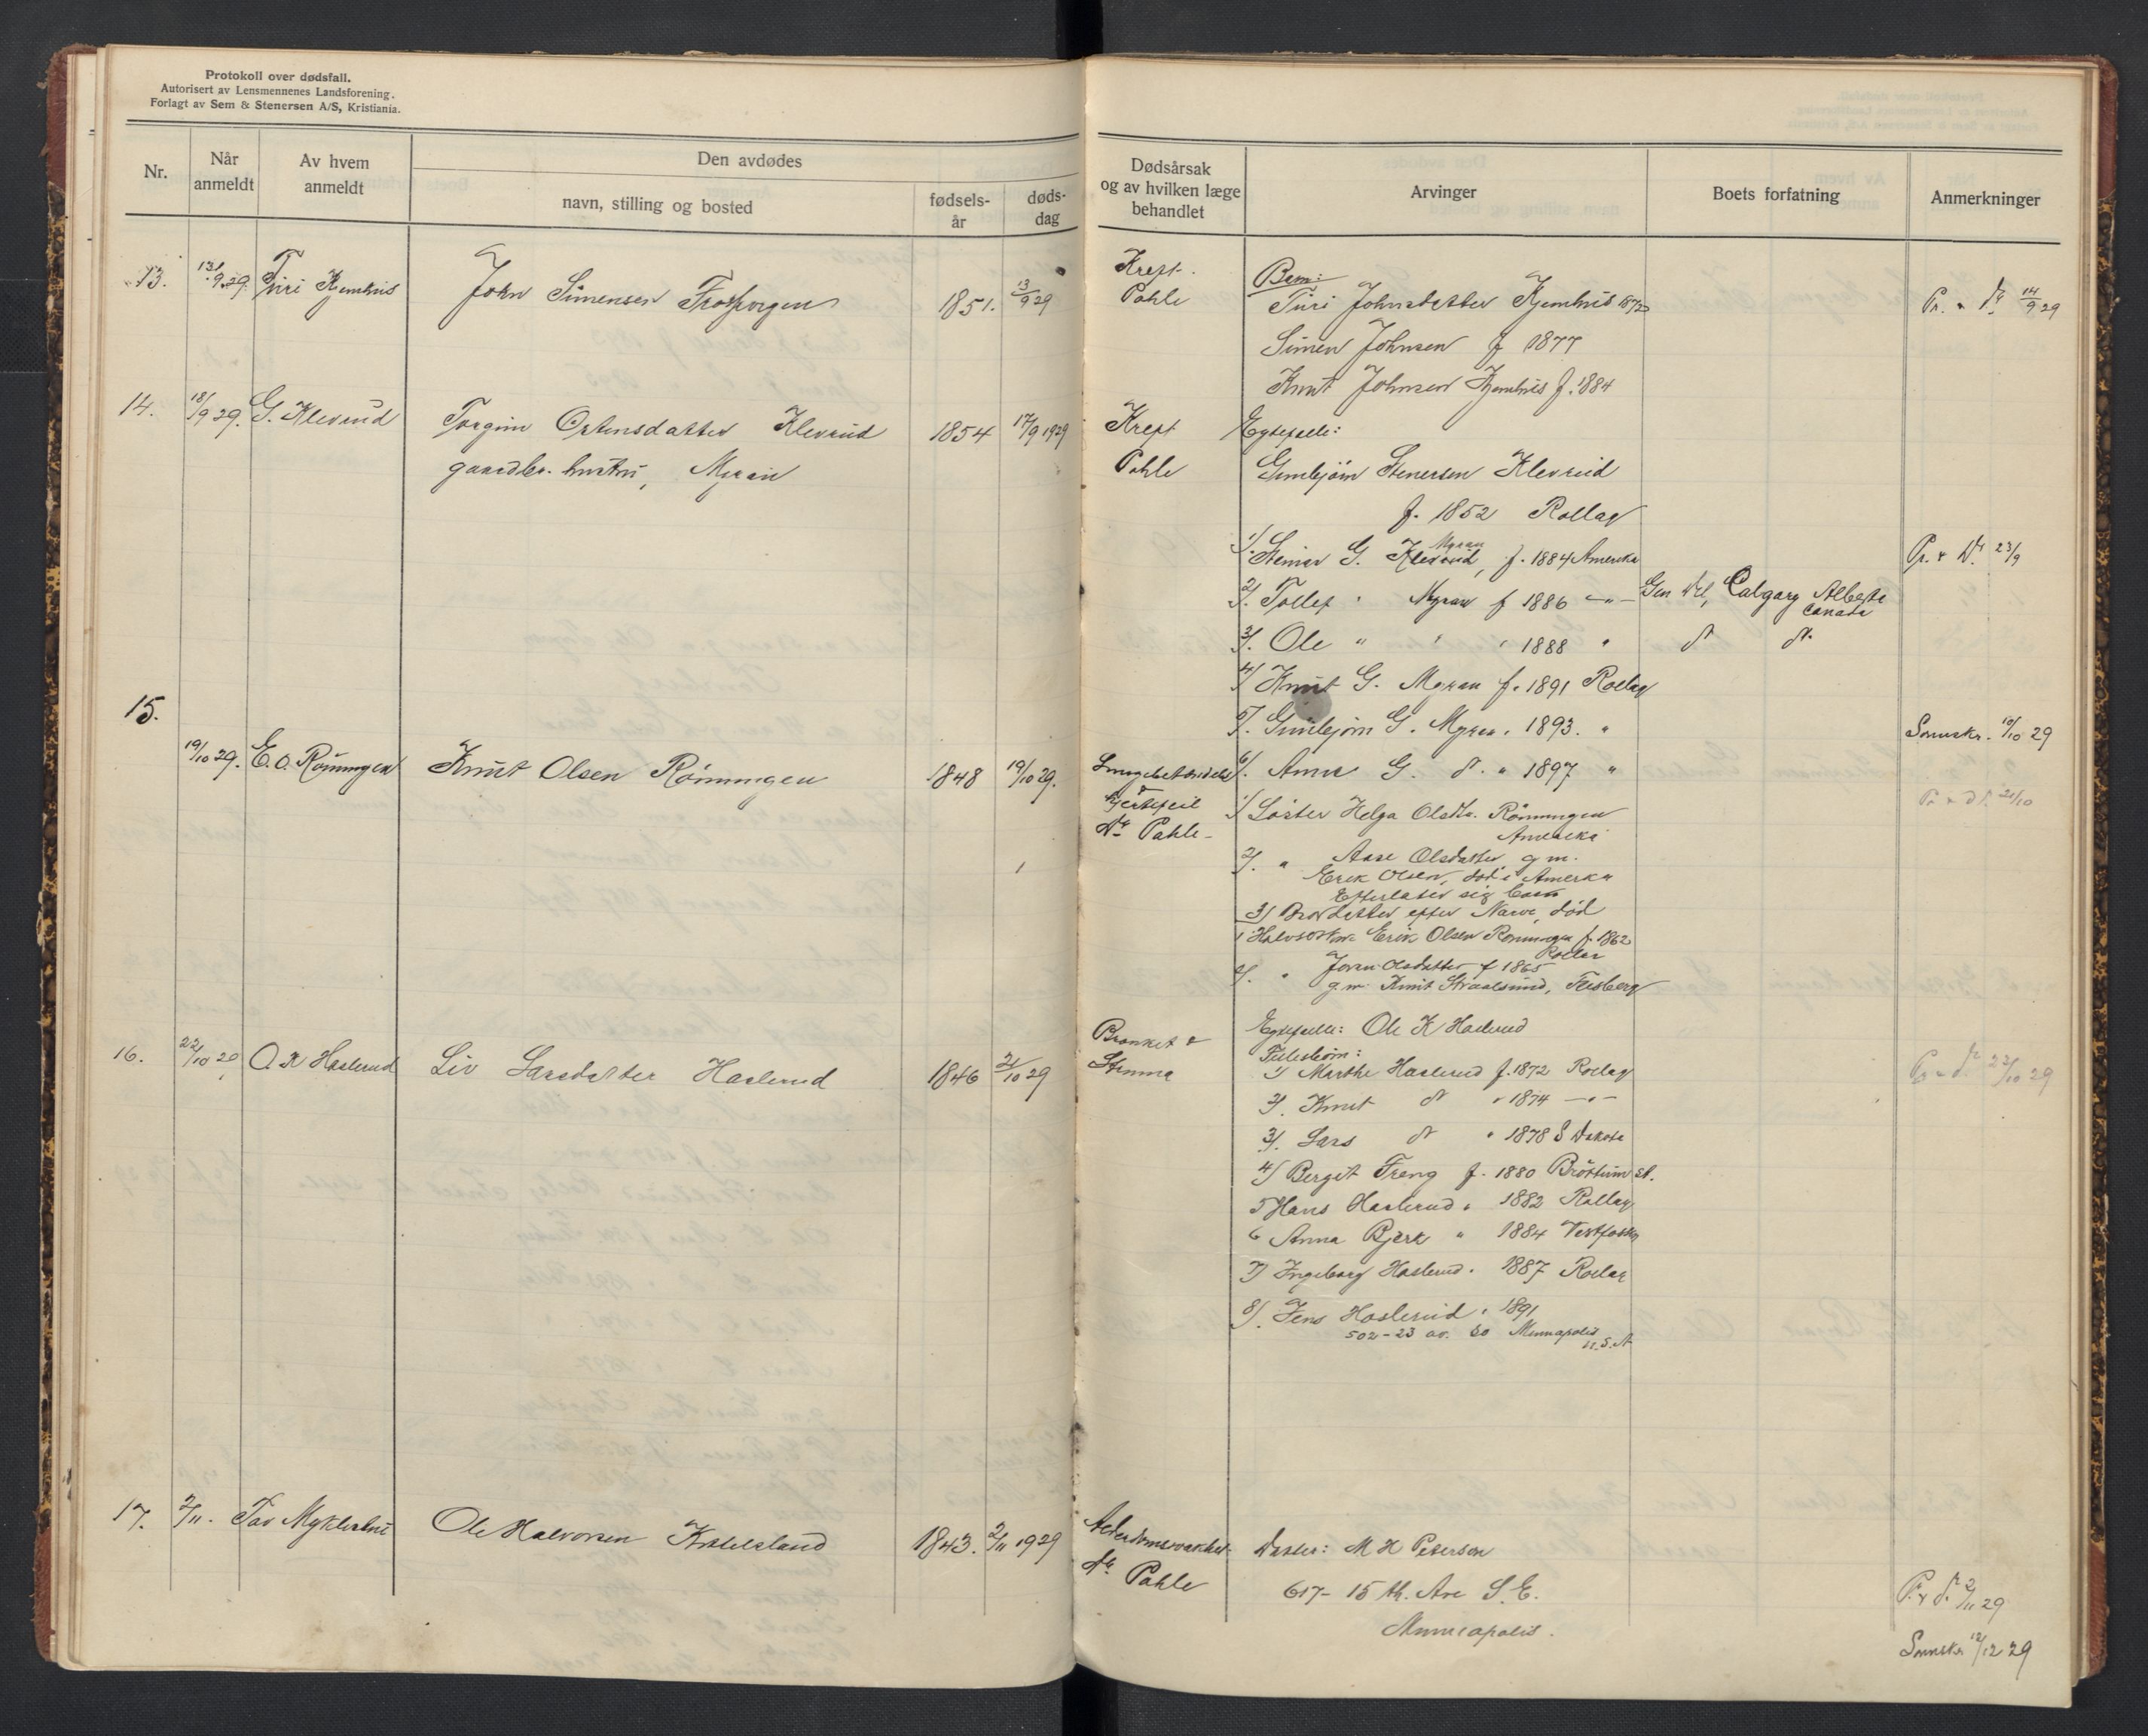 Protokoll over dødsfall.
Autorisert av Lensmennenes Landsforening.
Forlagt av Sem & Stenersen A/S, Kristiania.
Nr.
Når anmeldt
Av hvem anmeldt
Den avdødes
navn, stilling og bosted
fødselsår
dødsdag
Dødsårsak og av hvilken læge behandlet
Arvinger
Boets forfatning
Anmerkninger
13. 13/9 29 Turi Kjemhus John Simensen 1851. 13/9 29
Kreft.
Pahle
Barn:
Turi Johnsdatter Kjemhus 1872
Simen Johnsen f 1877
Knut Johnsen Kjemhus f. 1884
Pr. 14/9 29
14. 18/9 29. G. Klevrud Torgun Ostensdatter Klevrud 1854 17/9 1929
gaardbr. hustru, Myran
Kreft
Pahle
Egtefelle:
Gunbjörn Stenersen Klevrud
f. 1852 Rollag
1/. Steinar G. Klevrud Myran, f. 1884 Amerika
Pr. 23/9
2/. Tollef " Myran f 1886 — " — Gen del, Calgary Alberta
Canada
3/. Ole " " " 1888 " d d.
4/ Knut G. Myran f. 1891 Rollag
5/. Gunbjörn G. Myran. 1893. "
6/. Anne G. d. " 1897 "
15.
19/10 29. E. O. Rönningen Knut Olsen Rönningen 1848 19/10 29.
Lungebetendelse
Hjertefeil
Dr Pahle
Sommskr. 19/10 29
21/10
1/ Söster Helga Olsdtr. Rönningen
Amerika
2/. " Aase Olsdatter, g. m.
Erik Olsen, död i Amerika
Efterlater sig barn
3) Brordatter efter Narve, död
1 Halvsösken Erik Olsen Rönningen f. 1862
Rollag
2/. " Joren Olsdatter f 1865
g. m. Knut Straalsund, Flesberg
16. 22/10 29 O. K Haslerud Liv Larsdatter Haslerud 1846 21/10 29
Bronkit &
Struma
Egtefelle: Ole K Haslerud
22/10 29
1) Marthe Haslerud f. 1872 Rollag
2/. Knut d " 1874 — " —
3/. Lars d " 1878 S Dakota
4/ Bergit Treng f. 1880 Bröttum st.
5 Hans Haslerud " 1882 Rollag
6 Anna Bjerk " 1884 Vestfossen
7) Ingeborg Haslerud. 1887 Rollag
8/. Jens Haslerud " 1891
502 - 23 av. So Minneapolis
U.S.A
17. 2/11. Tov Myklestue Ole Halvorsen 1843. 2/11 1929
Alderdomssvakhet
Dr Pahle
Datter: M H Peterson
617 - 15 th. Ave S. E.
Minneapolis.
2/11 29
12/12 29